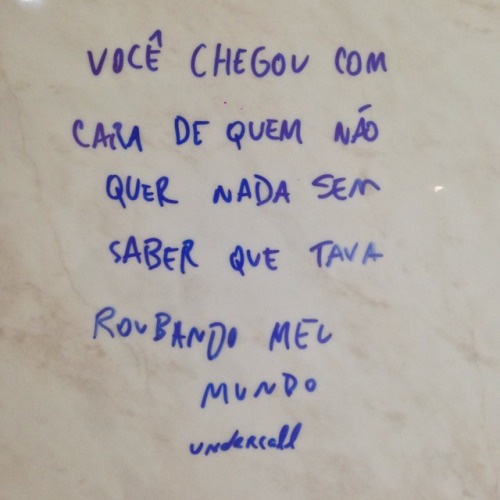 VOCÊ CHEGOU COM
CARA DE QUEM NÃO
QUER NADA SEM
SABER QUE TAVA
ROUBANDO MEU
MUNDO
undercall